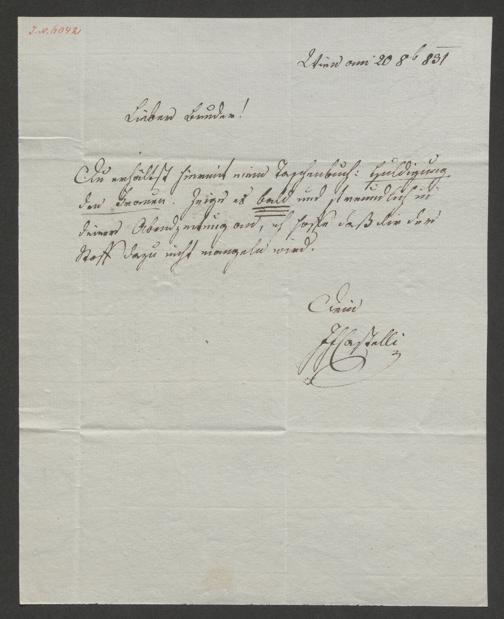 J.N. 6042
Wien am 20 8b 831
Lieber Bruder!
Du erhältst hiermit mein Taschenbuch: Huldigung
den Frauen. Zeige es bald und freundlich in
deiner Abendzeitung an, ich hoffe daß dir der
Stoff dazu nicht mangeln wird.
Dein
JFCastelli